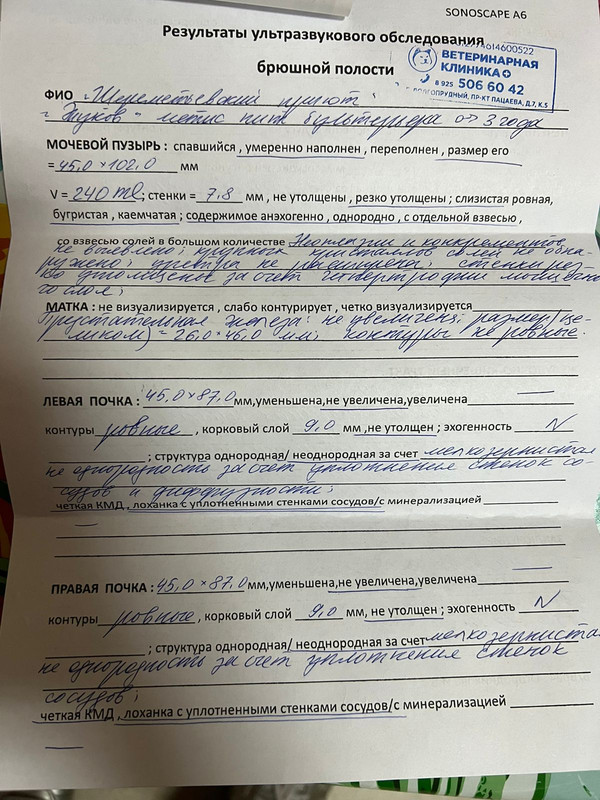 SONOSCAPE A6
Результаты ультразвукового обследования
брюшной полости
ВЕТЕРИНАРНАЯ
КЛИНИКА
8 925 506 60 42
ДОЛГОПРУДНЫЙ, ПР-КТ ПАЦАЕВА, Д.7, К.5
ФИО Шереметьевский приют
метис пит бультерьера от 3 года
МОЧЕВОЙ ПУЗЫРЬ : спавшийся , умеренно наполнен , переполнен , размер его
= 45,0 × 102,0 мм
V = 240 ml ; стенки = 7,8 мм , не утолщены , резко утолщены ; слизистая ровная,
бугристая , каемчатая ; содержимое анэхогенно , однородно , с отдельной взвесью ,
со взвесью солей в большом количестве Неоплазии и конкрементов
не выявлено; крупных кристаллов солей не обна-
ружено; уретра не расширена; стенки рез-
ко утолщены за счет мышечно-
го слоя;
МАТКА : не визуализируется , слабо контурирует , четко визуализируется
Предстательная железа: не увеличена; размер (це-
ликом) = 26,0 × 46,0 мм; контуры не ровные.
ЛЕВАЯ ПОЧКА : 45,0 × 87,0 мм,уменьшена,не увеличена,увеличена
контуры ровные , корковый слой 9,0 мм ,не утолщен ; эхогенность N
; структура однородная/ неоднородная за счет мелкозернистая
не однородность за счет уплотнения стенок со-
судов и диффузности;
четкая КМД , лоханка с уплотненными стенками сосудов/с минерализацией
ПРАВАЯ ПОЧКА : 45,0 × 87,0 мм,уменьшена,не увеличена,увеличена
контуры ровные , корковый слой 9,0 мм, не утолщен ; эхогенность N
; структура однородная/ неоднородная за счет мелкозернистая
не однородность за счет уплотнения стенок
сосудов;
четкая КМД , лоханка с уплотненными стенками сосудов/с минерализацией